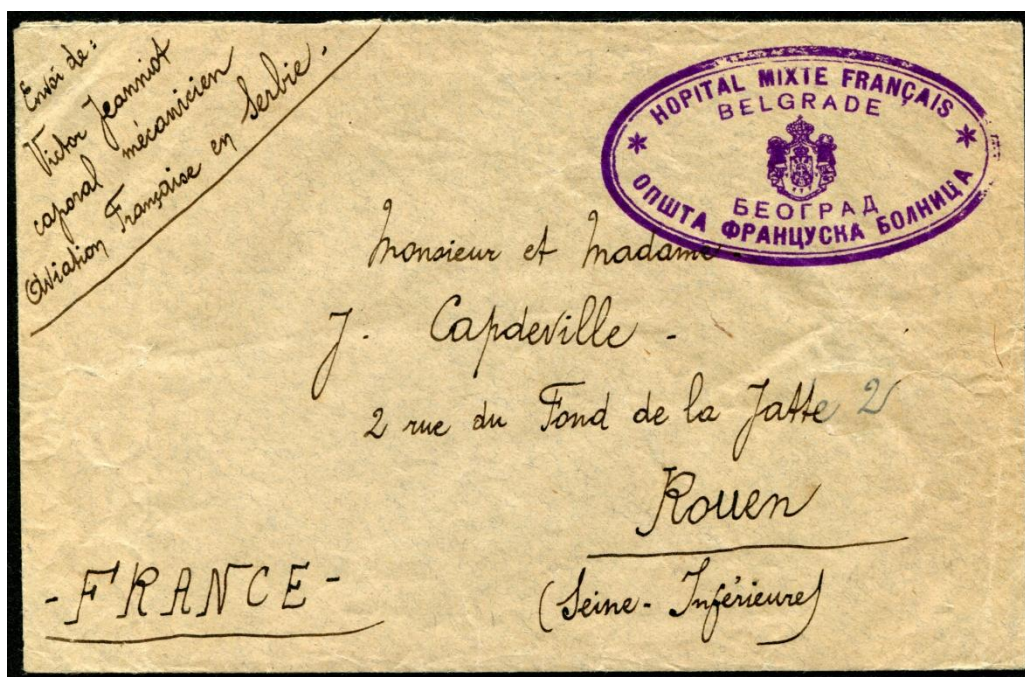 Envoi de:
Victor Jeanniot
caporal mécanicien
Aviation Française en Serbie.
* HOPITAL MIXTE FRANÇAIS *
BELGRADE
БЕОГРАД
ОПШТА ФРАНЦУСКА БОЛНИЦА
Monsieur et Madame.
J. Capdeville -
2 rue du Fond de la Jatte 2
Rouen
(Seine-Inférieure)
-FRANCE-